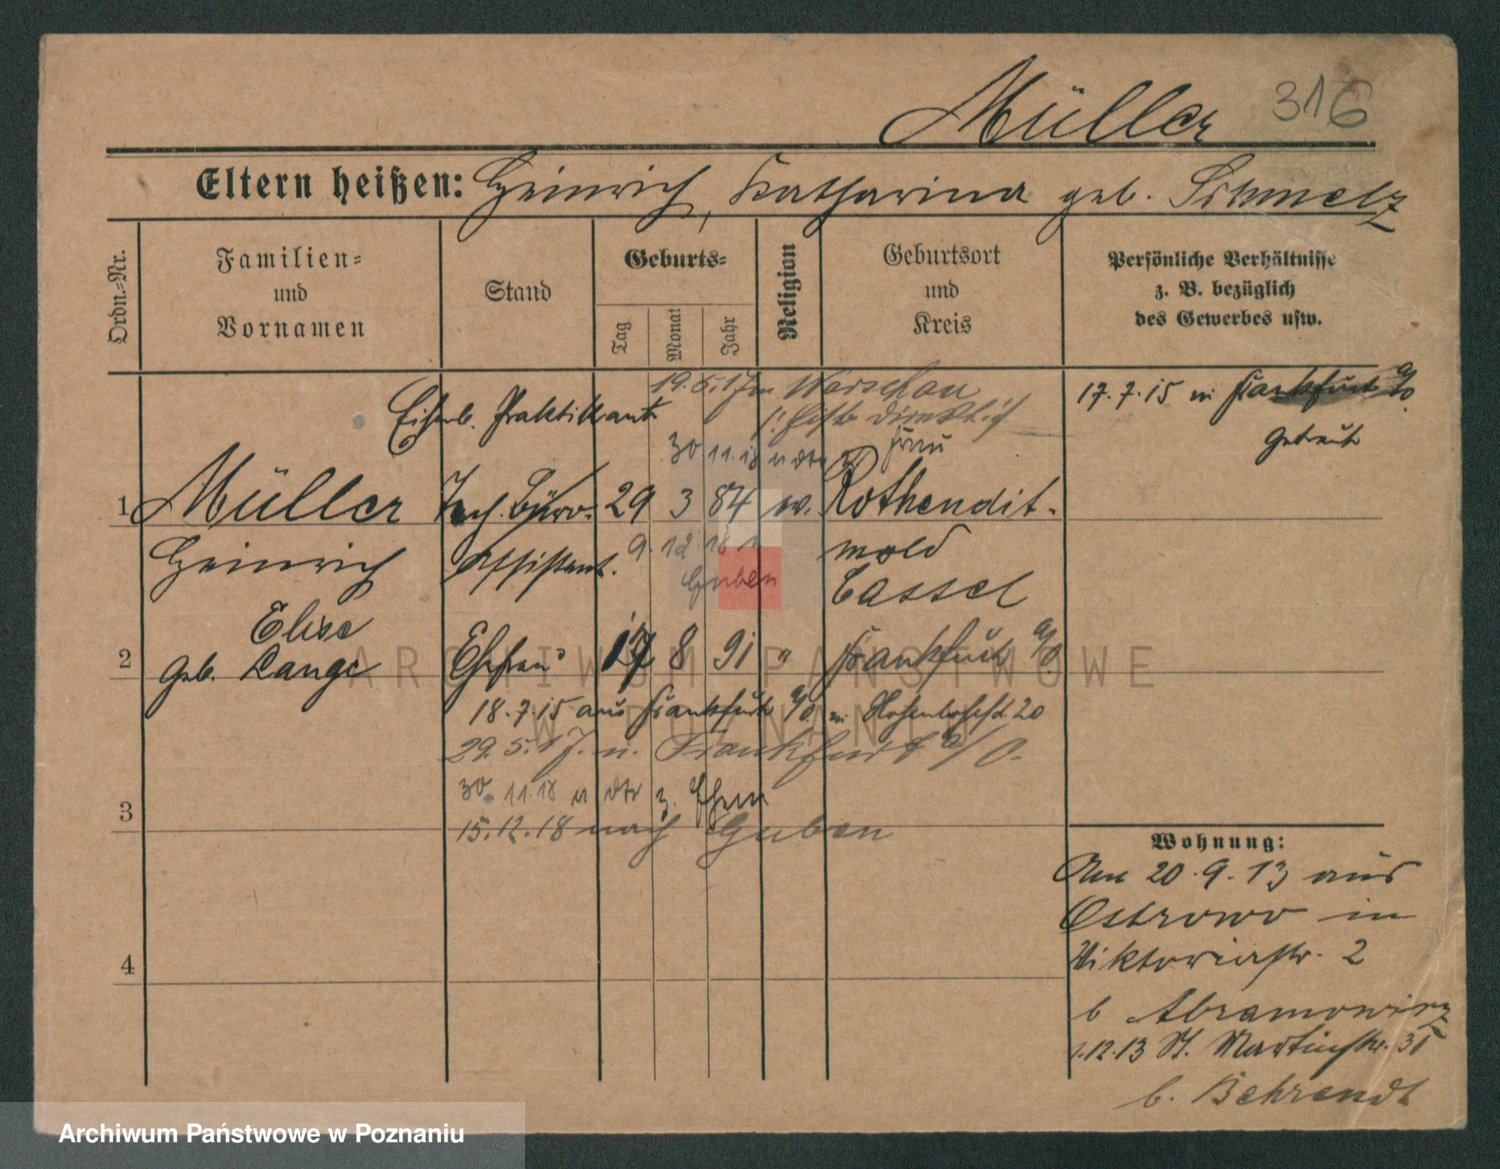 Müller 316
Eltern heißen: Heinrich, Katharina geb. Schmelz
Ordn.-Nr.
Familien-
und
Vornamen
Stand
Geburts-
Tag
Monat
Jahr
Religion
Geburtsort
und
Kreis
Persönliche Verhältnisse
z. B. bezüglich
des Gewerbes usw.
19.5.17 n Warschau
Eisenb. Praktikant
17.7.15 in Frankfurt a/O.
getraut
30.11.18 Frau
1 Müller Tech. Büro- 29 3 84 ev. Rothendit-
Heinrich Assistent. 9.12.18 n mold
Guben Cassel
Elise
2 geb. Lange Ehefrau 17 8 91 " Frankfurt a/O
18.7.15 aus Frankfurt a/O in 20
29.5.17. n. Frankfurt a/O.
30.11.18 z. Ehem
3 15.12.18 nach Guben
4
Wohnung:
Am 20.9.13 aus
Ostrowo in
Viktoriastr. 2
b Abramowicz
1.12.13 St. Martinstr. 31
b. Behrendt
ARCHIWUM PAŃSTWOWE
W POZNANIU
Archiwum Państwowe w Poznaniu